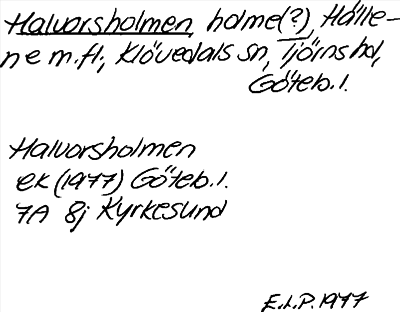 Halvorsholmen, holme(?), Hälle-
ne m.fl., Klövedals sn, Tjörns hd,
Göteb.l.
Halvorsholmen
ek (1977) Göteb.l.
7A 8j Kyrkesund
E.L.P. 1977